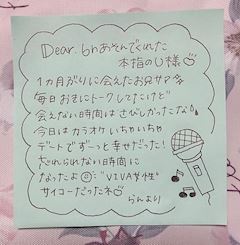 Dear. 6hあそんでくれた
本指のU様♡
1ヵ月ぶりに会えたお兄サマ
毎日おきにトークしてたけど
会えない時間はさびしかったな
今日はカラオケいちゃいちゃ
デートでずーっと幸せだった!
忘れられない時間に
なったよ "VIVA女性"
サイコーだったネ
らんより